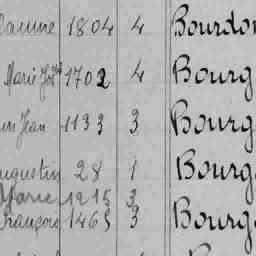 1804 4 Bourdon
Marie 1702 4 Bourg
Jean 1133 3 Bourg
ugustin 28 1 Bourg
Marie 1915 3
François 1463 3 Bourg